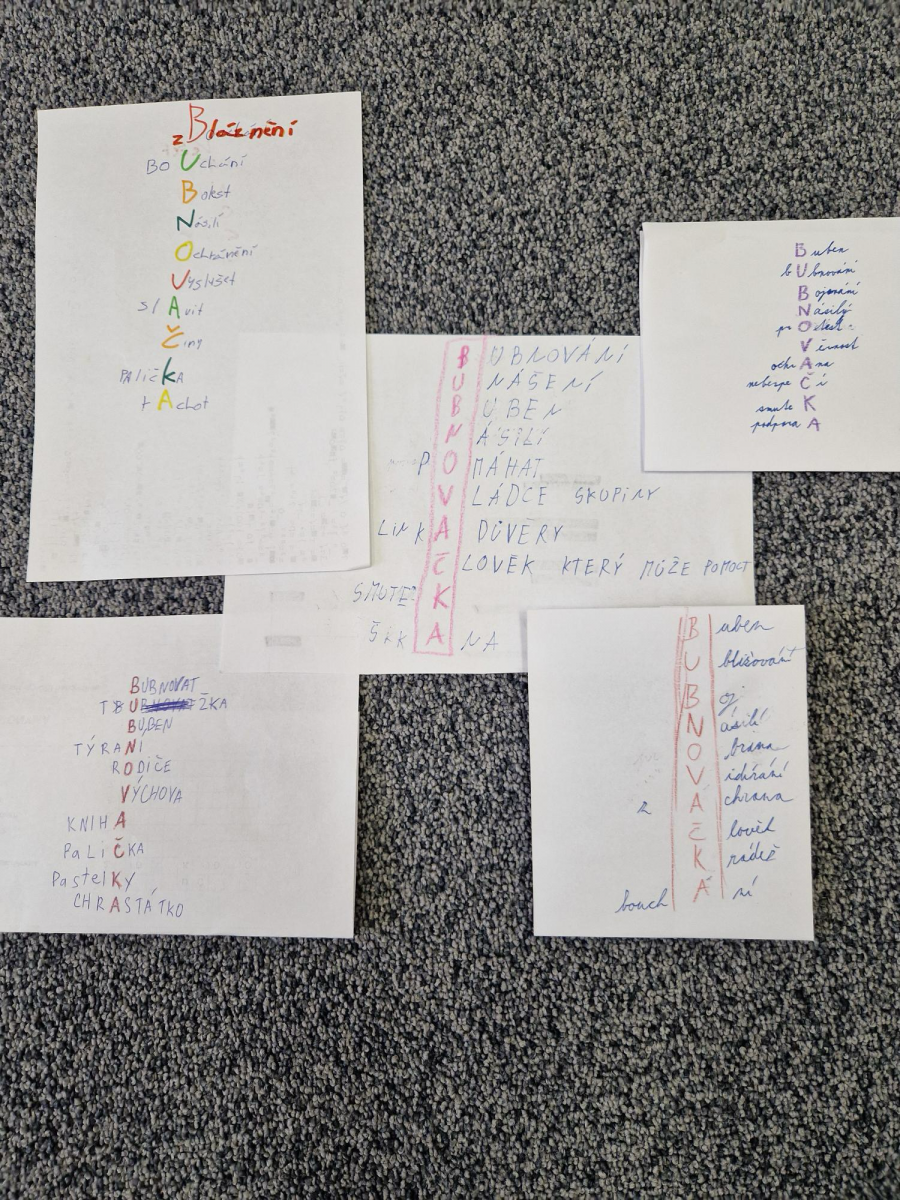 zBláznění
BOUchání
Bokst
Násilí
Ochránění
Vyslyšet
slAvit
Činy
PAličKA
tAchot
Buben
bUbnování
Bojování
Násilý
Věrnost
ochrAna
nebezpeČí
smuteK
podporA
BUBNOVÁNÍ
UNÁŠENÍ
BUBEN
NÁSILÍ
POMÁHAT
VLÁDCE SKUPINY
LINKA DŮVĚRY
ČLOVĚK KTERÝ MŮŽE POMOCT
SMUTEK
ŠIKANA
BUBNOVAT
BUBEN
TÝRANÍ
RODIČE
VÝCHOVA
KNIHA
PaLiČKA
PastelKy
CHRASTÁTKO
Buben
Ubližování
Boj
Násilí
Obrana
Vidírání
zÁchrana
Člověk
Krádež
bouchÁní